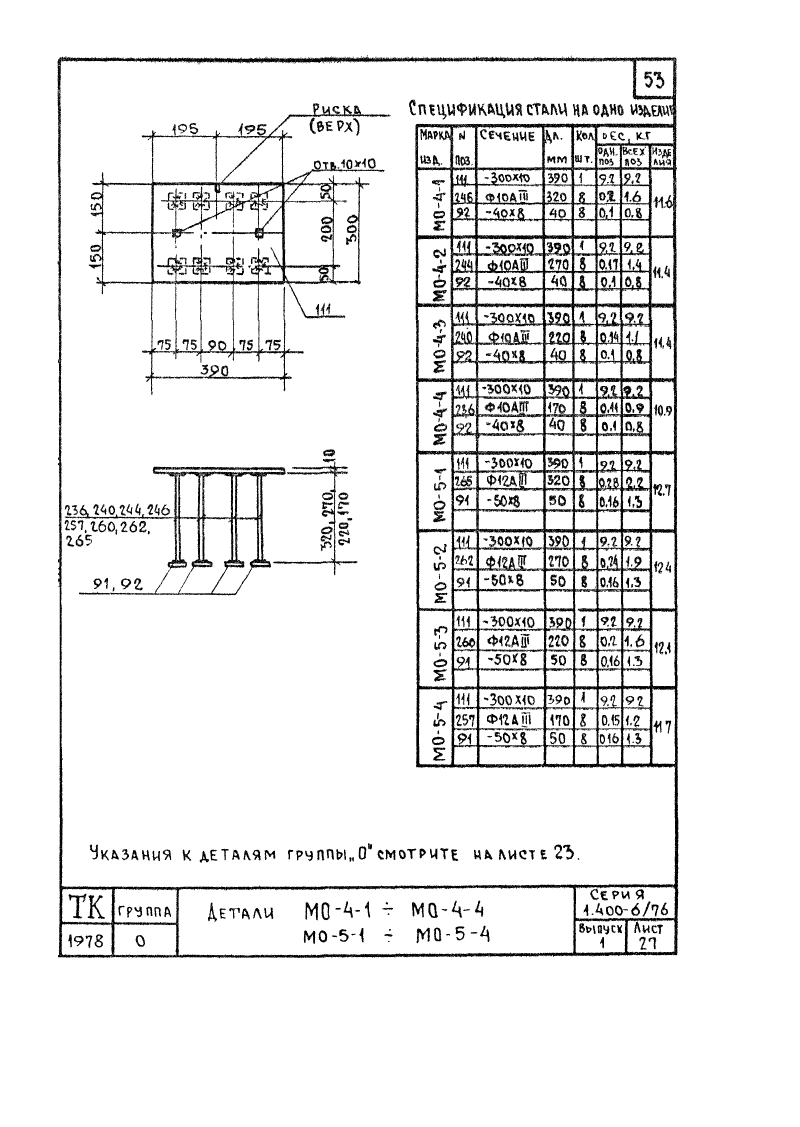 53
Риска
(верх)
195 195
Отв. 10×10
150
150
50
200
50
300
111
75 75 90 75 75
390
10
236, 240, 244, 246
257, 260, 262,
265
320, 270,
220, 170
91, 92
Спецификация стали на одно изделие
Марка изд. N поз. Сечение Дл. мм Кол. шт. Вес, кг
одн. поз всех поз изделия
МО-4-1 111 -300×10 390 1 9.2 9.2 11.6
246 Ф10АIII 320 8 0.2 1.6
92 -40×8 40 8 0,1 0.8
МО-4-2 111 -300×10 390 1 9.2 9,2 11.4
244 Ф10АIII 270 8 0.17 1.4
92 -40×8 40 8 0.1 0,8
МО-4-3 111 -300×10 390 1 9.2 9.2 11.4
240 Ф10АIII 220 8 0.14 1.1
92 -40×8 40 8 0.1 0,8
МО-4-4 111 -300×10 390 1 9.2 9.2 10.9
236 Ф10АIII 170 8 0.11 0.9
92 -40×8 40 8 0.1 0,8
МО-5-1 111 -300×10 390 1 9.2 9.2 12.7
265 Ф12АIII 320 8 0.28 2.2
91 -50×8 50 8 0.16 1.3
МО-5-2 111 -300×10 390 1 9.2 9.2 12.4
262 Ф12АIII 270 8 0.24 1.9
91 -50×8 50 8 0.16 1.3
МО-5-3 111 -300×10 390 1 9.2 9.2 12.1
260 Ф12АIII 220 8 0.2 1.6
91 -50×8 50 8 0.16 1.3
МО-5-4 111 -300×10 390 1 9.2 9.2 11.7
257 Ф12АIII 170 8 0.15 1.2
91 -50×8 50 8 0.16 1.3
Указания к деталям группы „О" смотрите на листе 23.
ТК
1978
группа
О
Детали МО-4-1 ÷ МО-4-4
МО-5-1 ÷ МО-5-4
Серия
1.400-6/76
Выпуск
1
Лист
27